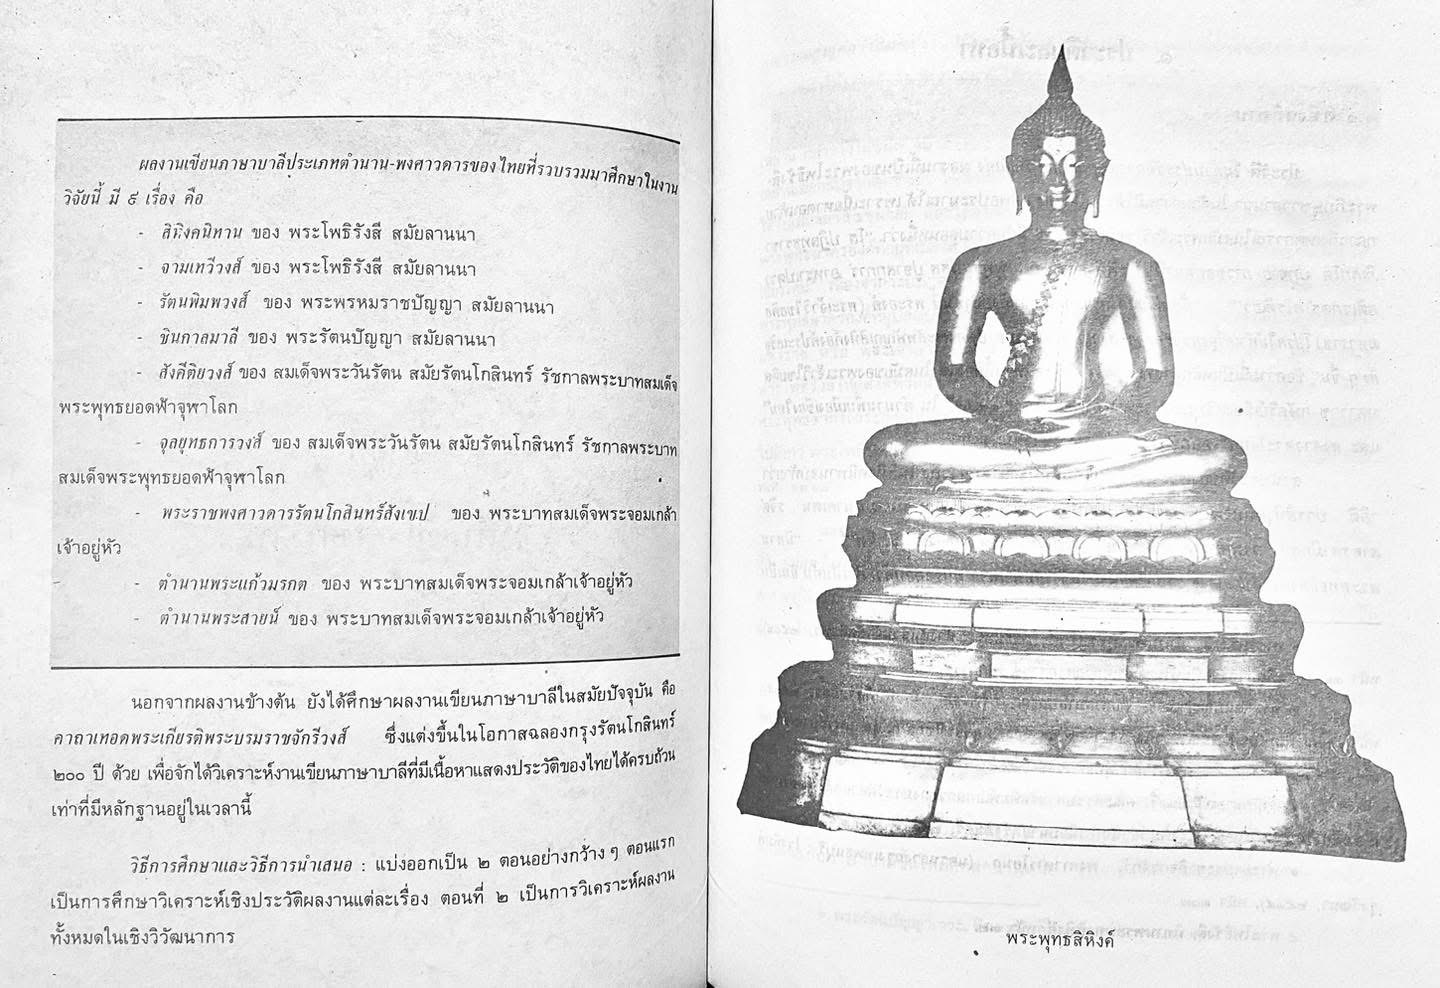 ผลงานเขียนภาษาบาลีประเภทตำนาน-พงศาวดารของไทยที่รวบรวมมาศึกษาในงาน
วิจัยนี้ มี ๙ เรื่อง คือ
- สิหิงคนิทาน ของ พระโพธิรังสี สมัยลานนา
- จามเทวีวงส์ ของ พระโพธิรังสี สมัยลานนา
- รัตนพิมพวงส์ ของ พระพรหมราชปัญญา สมัยลานนา
- ชินกาลมาลี ของ พระรัตนปัญญา สมัยลานนา
- สังคีติยวงส์ ของ สมเด็จพระวันรัตน สมัยรัตนโกสินทร์ รัชกาลพระบาทสมเด็จ
พระพุทธยอดฟ้าจุฬาโลก
- จุลยุทธการวงส์ ของ สมเด็จพระวันรัตน สมัยรัตนโกสินทร์ รัชกาลพระบาท
สมเด็จพระพุทธยอดฟ้าจุฬาโลก
- พระราชพงศาวดารรัตนโกสินทร์สังเขป ของ พระบาทสมเด็จพระจอมเกล้า
เจ้าอยู่หัว
- ตำนานพระแก้วมรกต ของ พระบาทสมเด็จพระจอมเกล้าเจ้าอยู่หัว
- ตำนานพระสายน์ ของ พระบาทสมเด็จพระจอมเกล้าเจ้าอยู่หัว
นอกจากผลงานข้างต้น ยังได้ศึกษาผลงานเขียนภาษาบาลีในสมัยปัจจุบัน คือ
คาถาเทอดพระเกียรติพระบรมราชจักรีวงส์ ซึ่งแต่งขึ้นในโอกาสฉลองกรุงรัตนโกสินทร์
๒๐๐ ปี ด้วย เพื่อจักได้วิเคราะห์งานเขียนภาษาบาลีที่มีเนื้อหาแสดงประวัติของไทยได้ครบถ้วน
เท่าที่มีหลักฐานอยู่ในเวลานี้
วิธีการศึกษาและวิธีการนำเสนอ : แบ่งออกเป็น ๒ ตอนอย่างกว้าง ๆ ตอนแรก
เป็นการศึกษาวิเคราะห์เชิงประวัติผลงานแต่ละเรื่อง ตอนที่ ๒ เป็นการวิเคราะห์ผลงาน
ทั้งหมดในเชิงวิวัฒนาการ
พระพุทธสิหิงค์